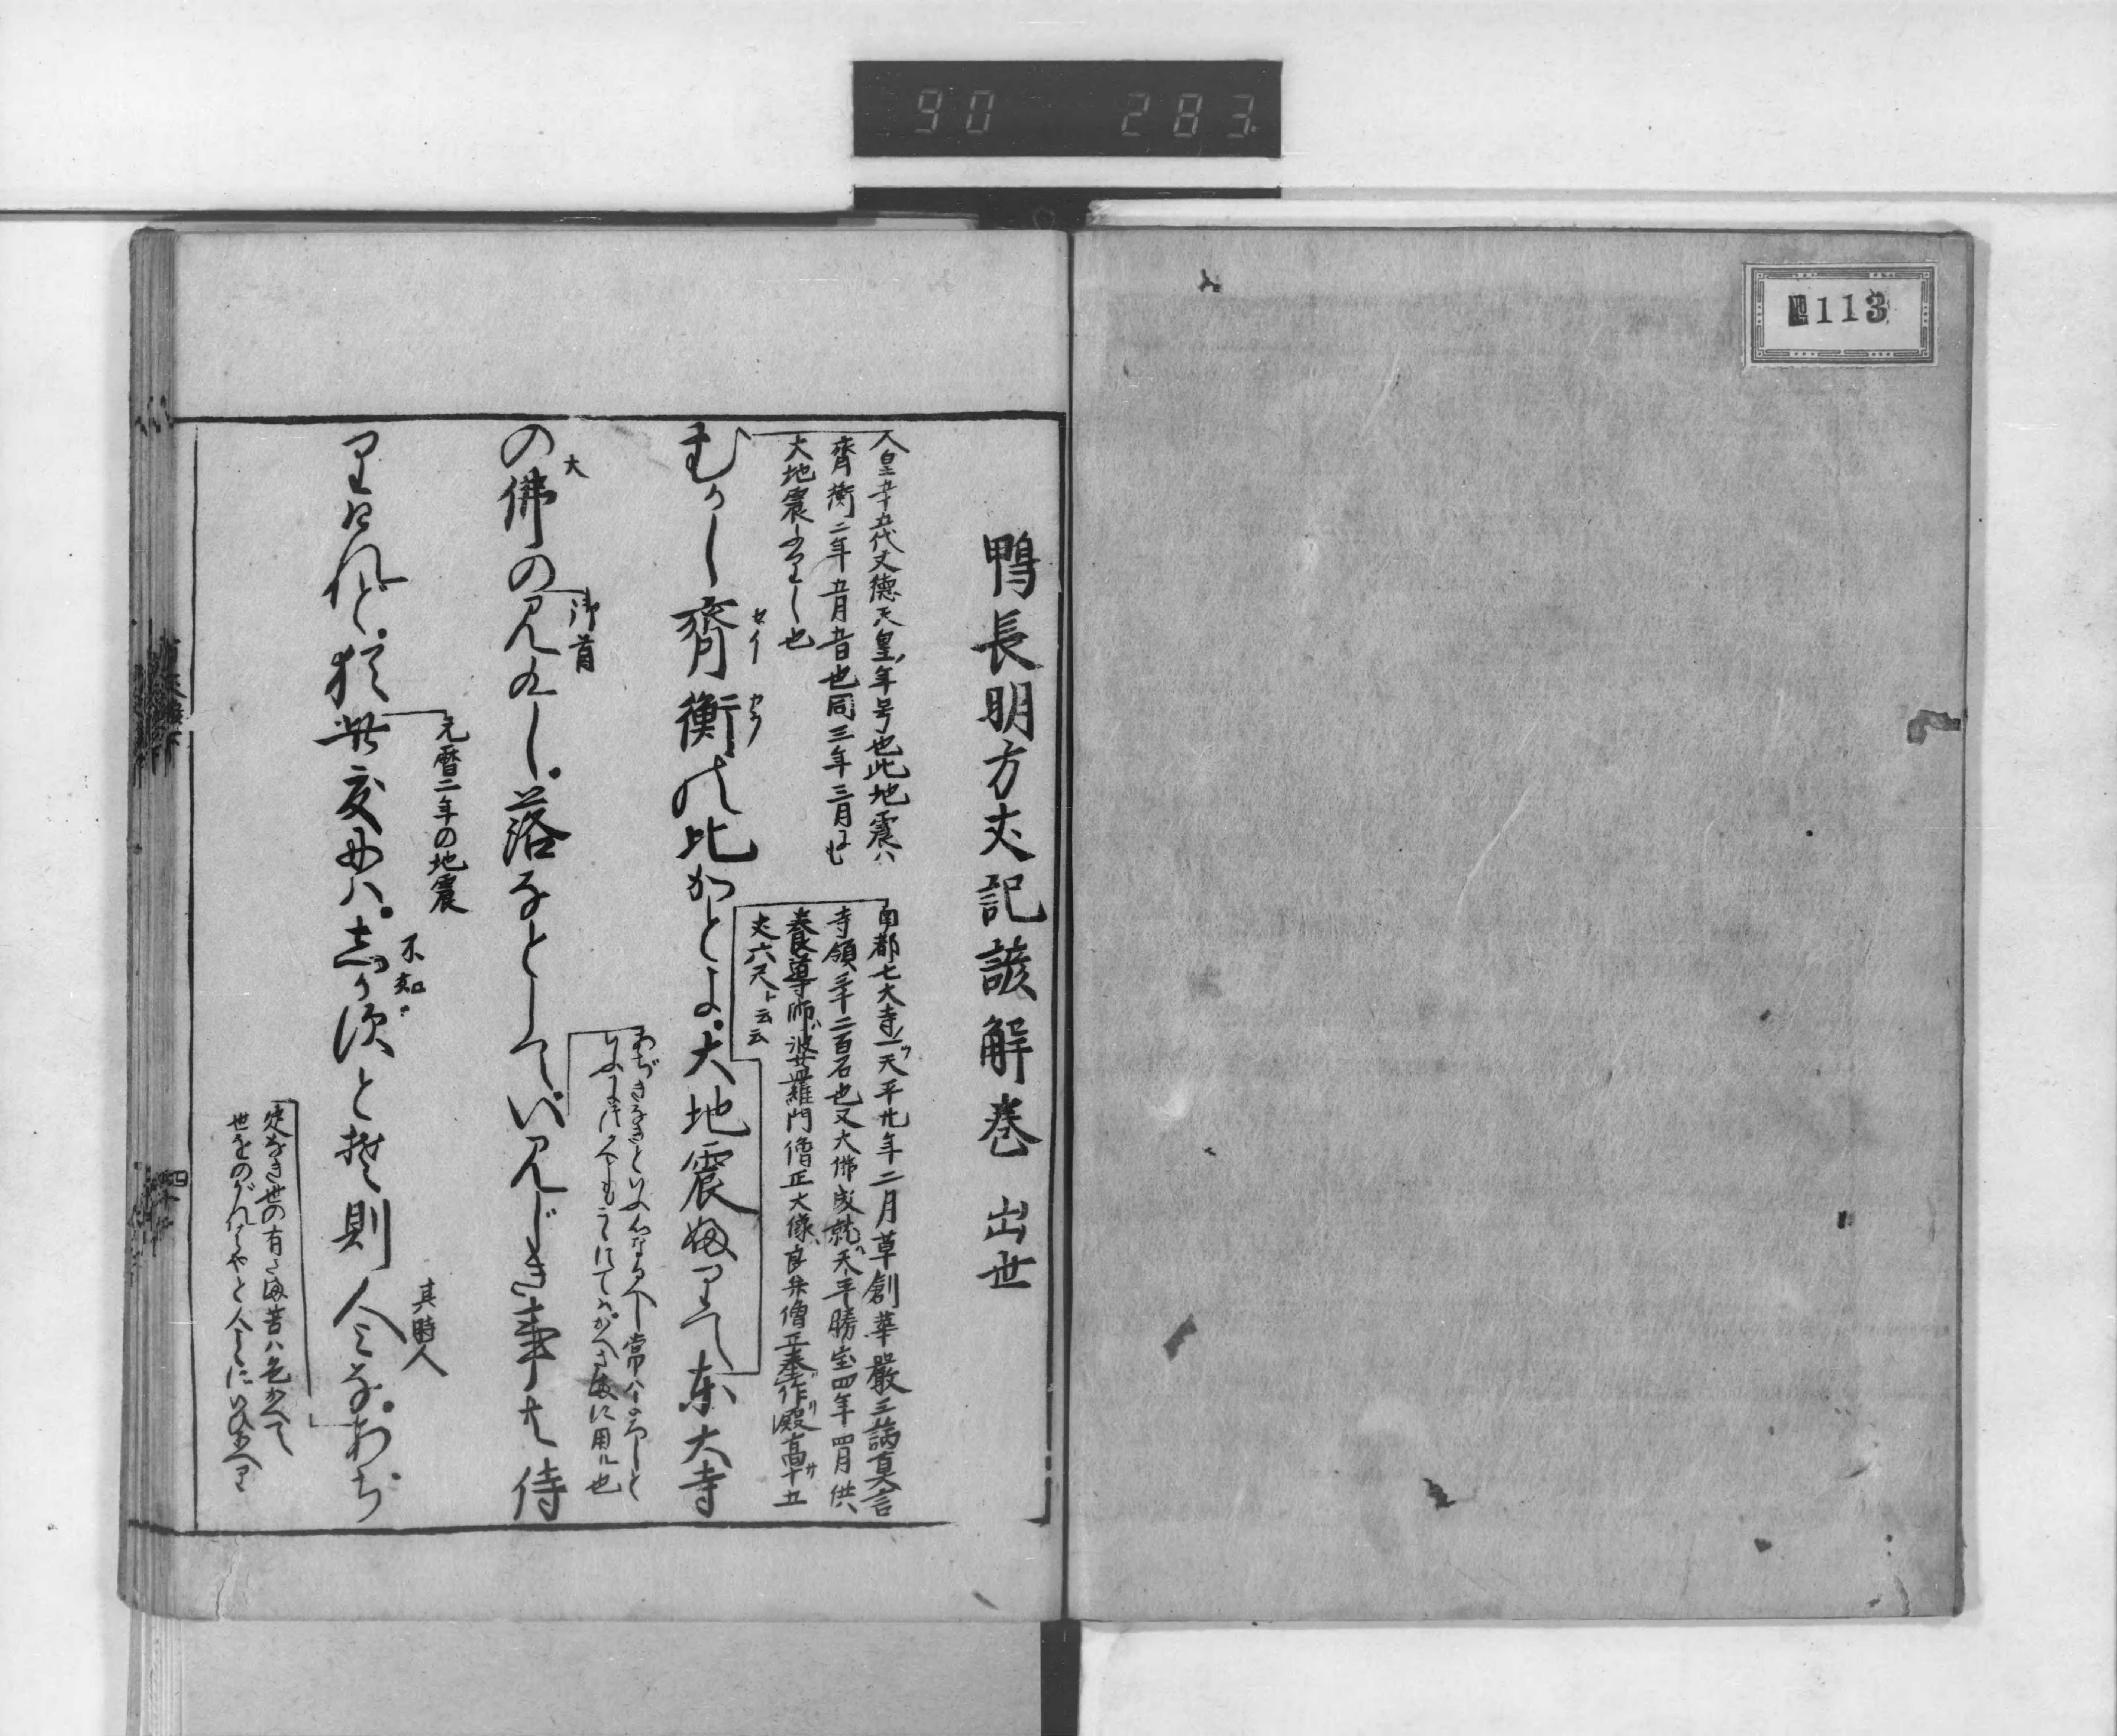 90 283
113
鴨長明方丈記諺解巻 出世
人皇五十五代文徳天皇ノ年号也此地震ハ
齊衡二年五月五日也同三年三月にも
大地震ふりし也
南都七大寺ノ一ツ天平廿年二月草創華嚴三論真言
寺領三千二百石也又大佛成就ハ天平勝宝四年四月供
養導師ハ婆羅門僧正大像ハ良弁僧正奉作リ殿高サ十五
丈六尺ト云云
むかし齊衡の比かとよ。大地震ふりて東大寺
セイ カウ
の佛のみくし。落なとしていみじき事共侍
大
御首
あぢきなきといふ心なるへし常ハよろしと
りけれど。猶此度にハ。志かずと其則人みな。あぢ
元暦二年の地震
不如
其時人
定なき世の有さま苦ハ色かへて
世をのがればやと人々にいひあへり